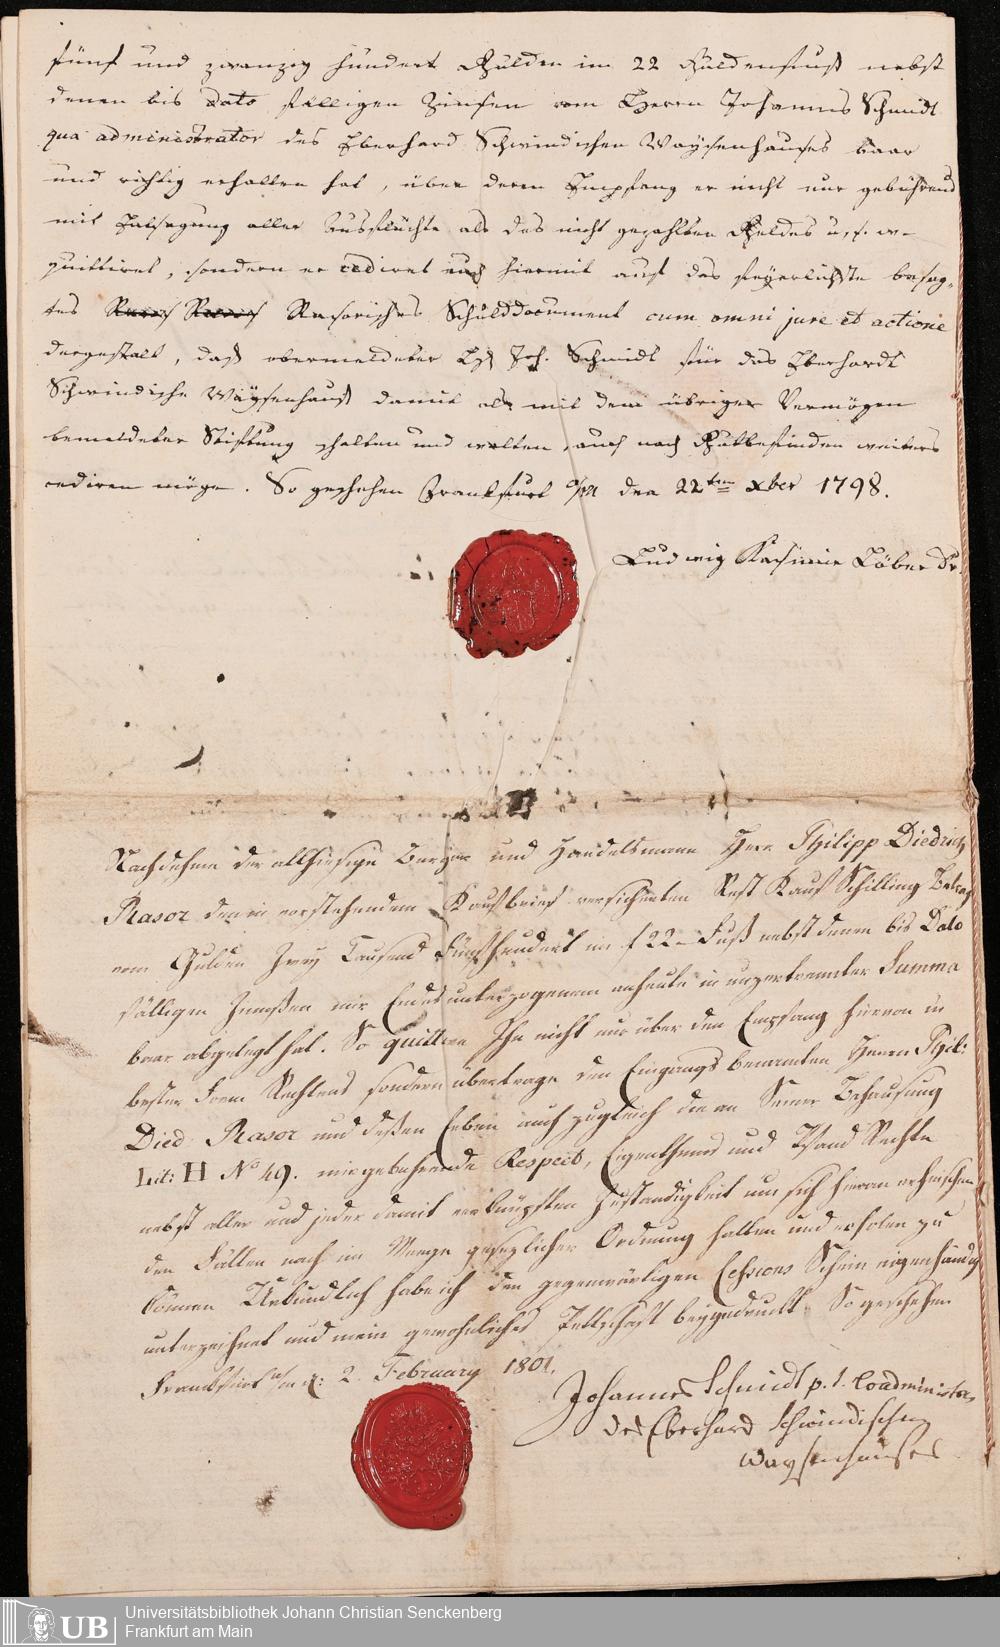 fünf und zwanzig hundert Gulden im 22 Guldenfuß nebst
denen bis dato fälligen Zinsen vom Herrn Johannes Schmidt
qua administrator des Eberhard Schwindischen Waysenhauses baar
und richtig erhalten hat, über deren Empfang er nicht nur gebührend
mit Entsagung aller Ausflüchte als des nicht gezahlten Geldes u.s.w.
quittiret, sondern er cediret auch hiermit auf das feyerlichste besag-
tes Rasorisches Schulddocument cum omni jure et actione
dergestalt, daß obermeldeter Hr Joh. Schmidt für das Eberhardt
Schwindische Waysenhauß damit als mit dem übrigen Vermögen
bemeldeter Stiftung schalten und walten, auch nach Gutbefinden weiters
cediren möge. So geschehen Frankfurt a/M den 22ten xber 1798.
Ludwig Kasimir Löber Dr.
Nachdeme der allhiesige Burger und Handelsmann Herr Philipp Diedrich
Rasor den in vorstehendem Kaufbrief versicherten Rest Kauf Schilling Betrag
von Gulden Zwey Tausend Fünfhundert im f 22 Fuß nebst denen bis Dato
fälligen Zinnßen mir Endes unterzogenem anheute in unzertrennter Summa
baar abgelegt hat. So quittire Ihn nicht nur über den Empfang hiervon in
bester Form Rechtens sondern übertrage den Eingangs benannten Herrn Phil:
Died: Rasor und deßen Erben auch zugleich die an Seiner Behausung
Lit: H No 49. mir gebührende Respect, Eigenthums und Pfand Rechte
nebst aller und jeder damit verknüpften Zuständigkeit um sich hieran erheischen
den Fällen nach in Wege gesezlicher Ordnung halten und erholen zu
können Urkundlich habe ich den gegenwärtigen Cessions Schein eigenhändig
unterzeichnet und mein gewöhnliches Pettschaft beygedruckt So geschehen
Frankfurt a/m d: 2. February 1801.
Johannes Schmidt p. t. Coadministor
des Eberhard Schwindischen
Waysenhauses
UB
Universitätsbibliothek Johann Christian Senckenberg
Frankfurt am Main